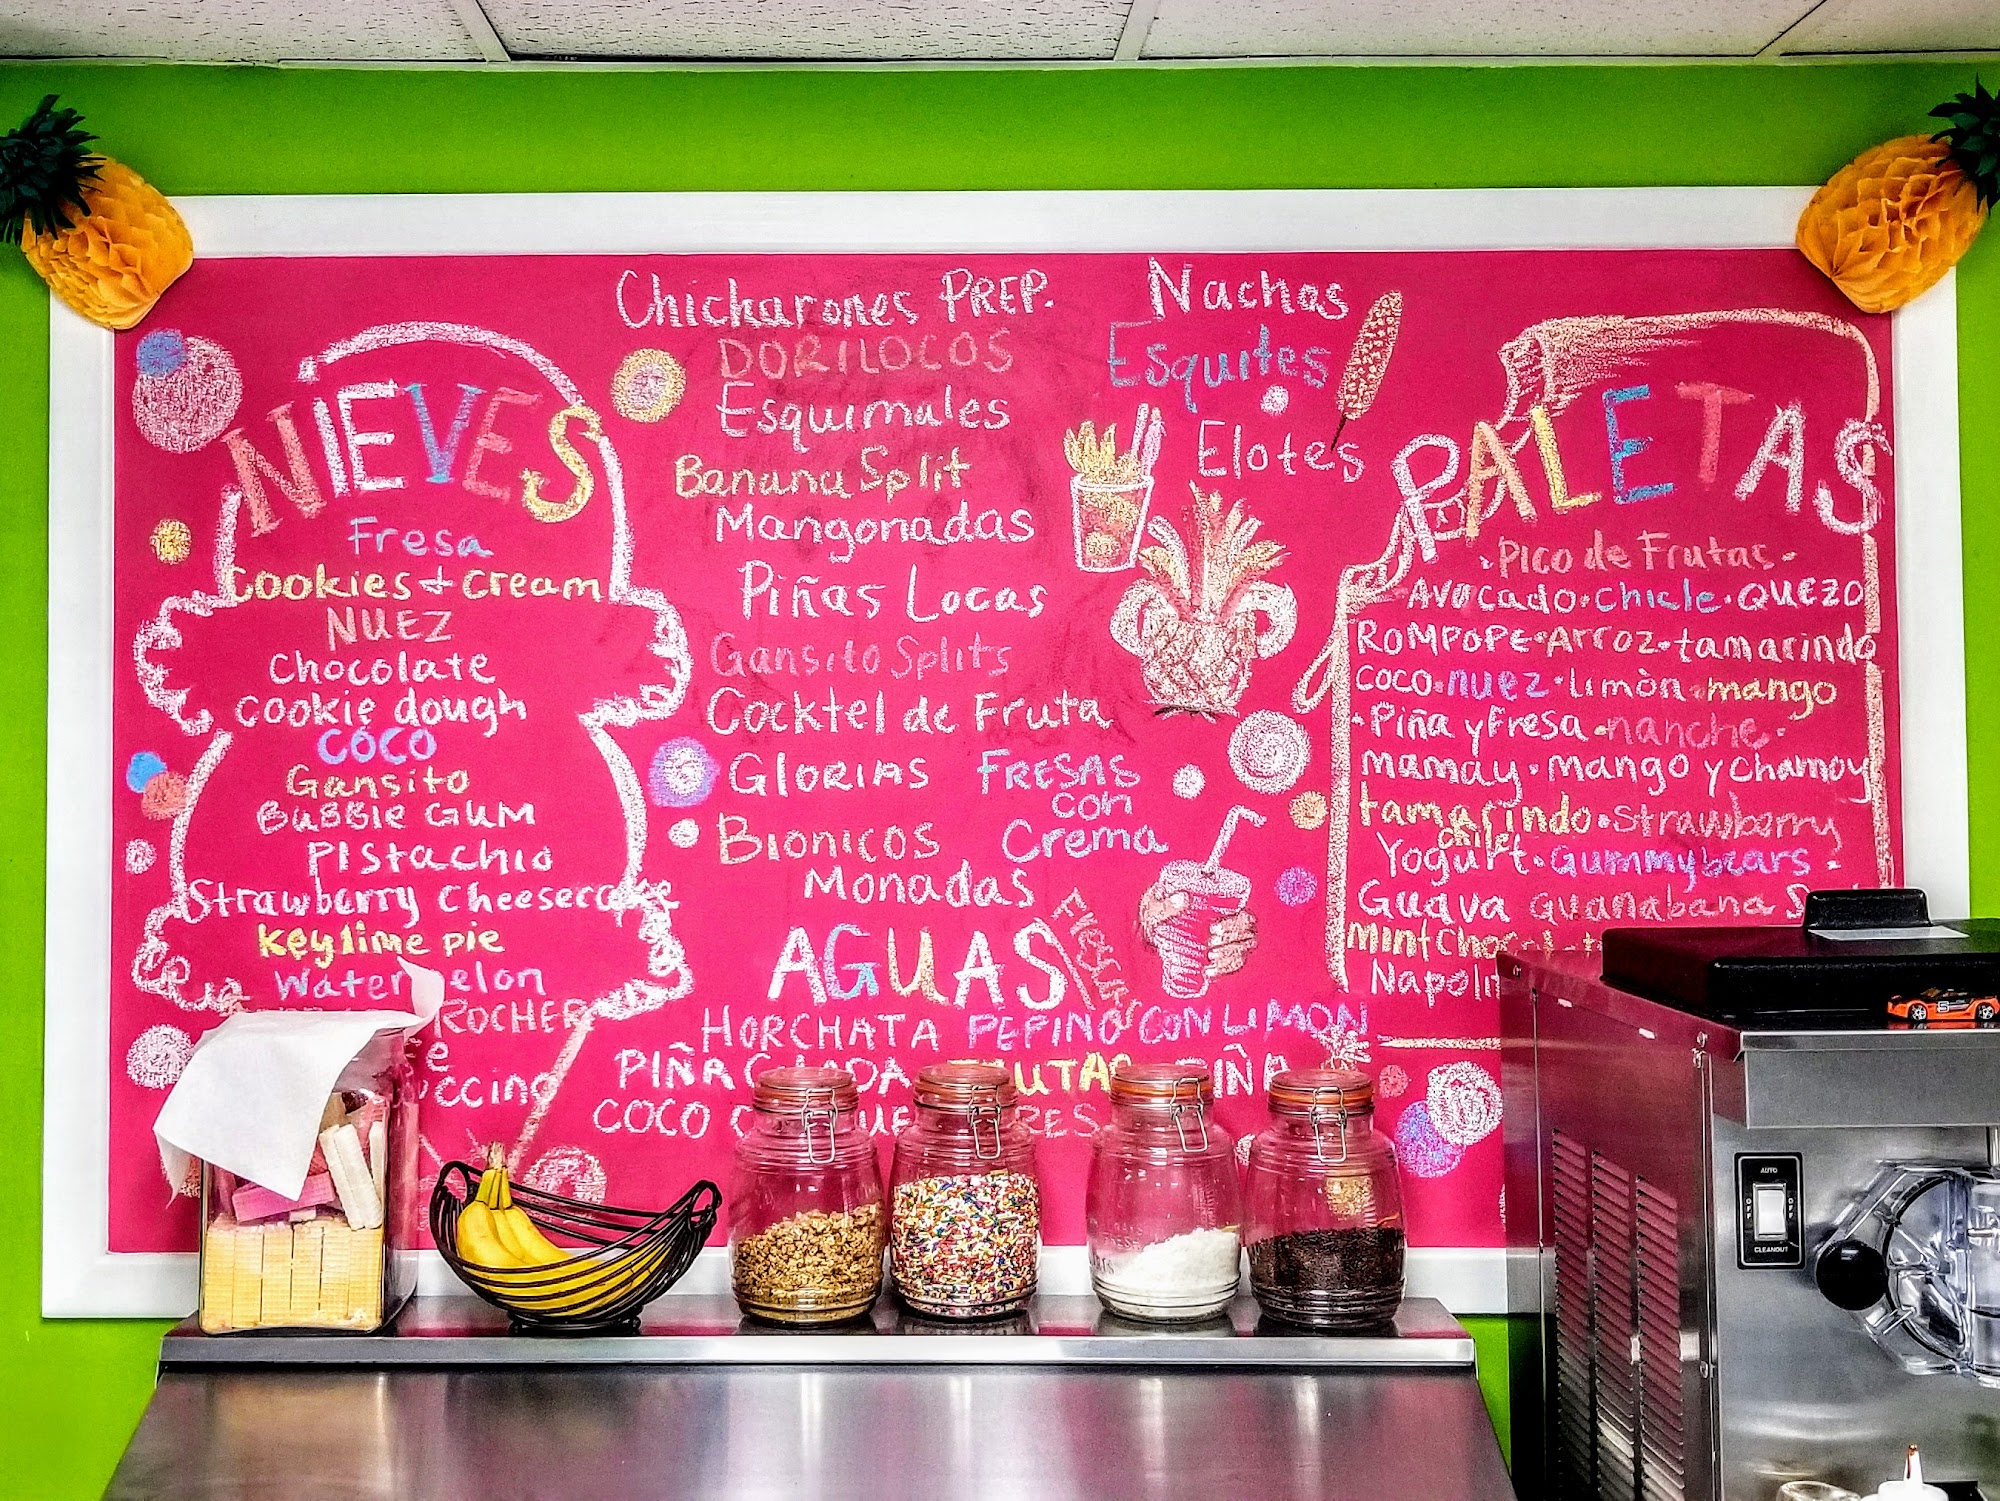 NIEVES
Fresa
Cookies + Cream
NUEZ
Chocolate
Cookie dough
COCO
Gansito
BuBBle GUM
PIStachio
Strawberry Cheesecake
Key lime pie
Watermelon
ROCHER
Chicharones PREP.
DORILOCOS
Esquimales
Banana Split
Mangonadas
Piñas Locas
Gansito Splits
Cocktel de Fruta
GLORIAS
BIONICOS
Monadas
FRESAS
con
Crema
Nachos
Esquites
Elotes
AGUAS
FRESCAS
HORCHATA PEPINO CON LIMON
PIÑA COLADA PIÑA
COCO
PALETAS
• PICO de Frutas •
Avocado • chicle • QUEZO
ROMPOPE • Arroz • tamarindo
COCO • nuez • Limòn • mango
• Piña y Fresa • nanche •
Mamay • mango y chamoy
tamarindo • Strawberry
chile
Yogurt • Gummybears •
Guava guanabana
mint
AUTO
OFF
OFF
CLEANOUT
5